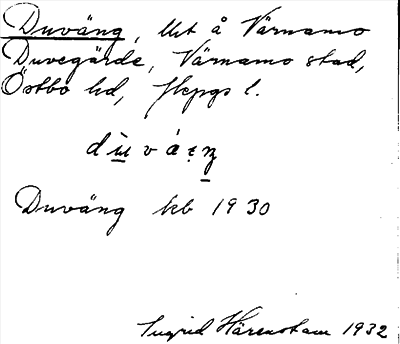 Duväng, lht å Värnamo
Duvegärde, Värnamo stad,
Östbo hd, Jkpgs l.
dùváŋ
Duväng kb 1930
Ingrid Härenstam 1932